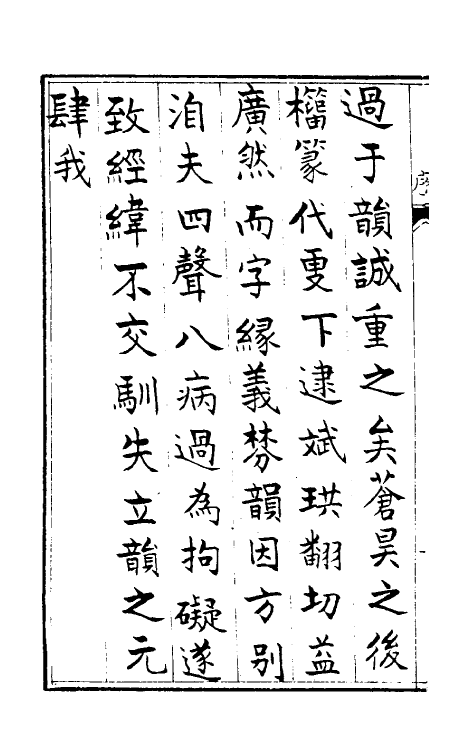 過于韻誠重之矣蒼昊之後
籀篆代更下逮斌珙翻切益
廣然而字緣義棼韻因方别
洎夫四聲八病過為拘礙遂
致經緯不交馴失立韻之元
肆我
序